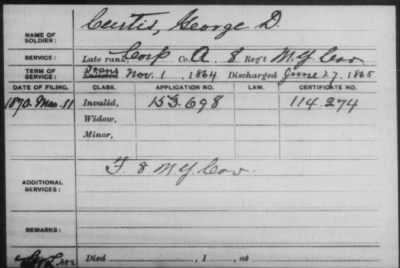 NAME OF SOLDIER: Curtis, George D.
SERVICE: Late rank, Corp Co. A, 8 Reg't N.Y. Cav
TERM OF SERVICE: Nov. 1, 1864 Discharged June 27, 1865
DATE OF FILING. CLASS. APPLICATION NO. LAW. CERTIFICATE NO.
1870 Mar. 11 Invalid, 153.698 114.274
Widow,
Minor,
ADDITIONAL SERVICES: F 8 N.Y. Cav.
REMARKS:
Died , 1 , at